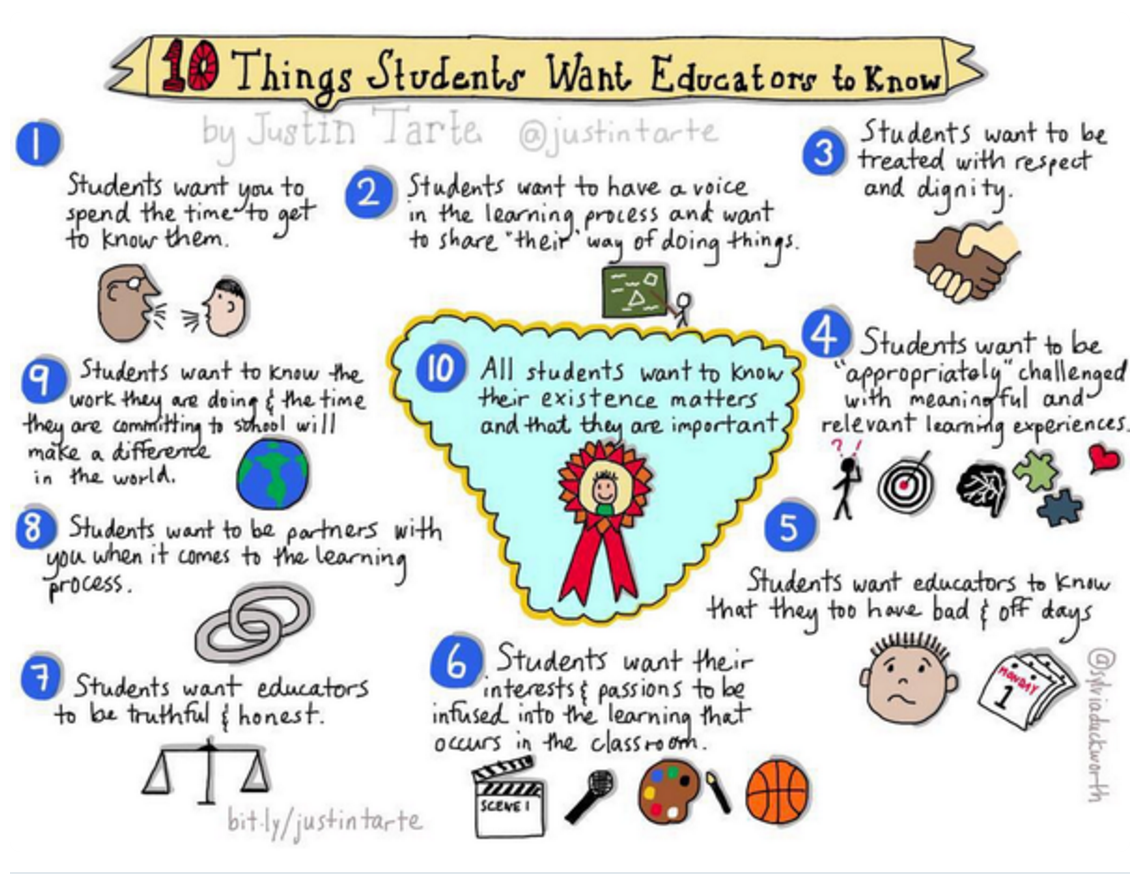 10 Things Students Want Educators to Know
by Justin Tarte @justintarte
1
Students want you to
spend the time to get
to know them.
2
Students want to have a voice
in the learning process and want
to share "their" way of doing things.
3
Students want to be
treated with respect
and dignity.
4
Students want to be
"appropriately" challenged
with meaningful and
relevant learning experiences.
? !
5
Students want educators to know
that they too have bad & off days
MONDAY
1
6
Students want their
interests & passions to be
infused into the learning that
occurs in the classroom.
SCENE 1
7
Students want educators
to be truthful & honest.
8
Students want to be partners with
you when it comes to the learning
process.
9
Students want to know the
work they are doing & the time
they are committing to school will
make a difference
in the world.
10
All students want to know
their existence matters
and that they are important.
bit.ly/justintarte
@sylviaduckworth